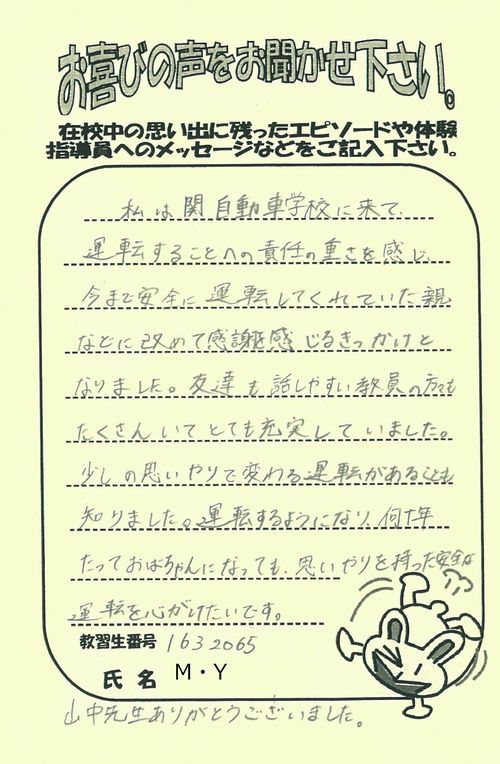 お喜びの声をお聞かせ下さい。
在校中の思い出に残ったエピソードや体験
指導員へのメッセージなどをご記入下さい。
私は関自動車学校に来て、
運転することへの責任の重さを感じ、
今まで安全に運転してくれていた親
などに改めて感謝を感じるきっかけと
なりました。友達も話しやすい教員の方々も
たくさんいてとても充実していました。
少しの思いやりで変わる運転があることも
知りました。運転するようになり、何十年
たっておばちゃんになっても、思いやりを持った安全な
運転を心がけたいです。
教習生番号 1632065
氏名 M・Y
山中先生ありがとうございました。